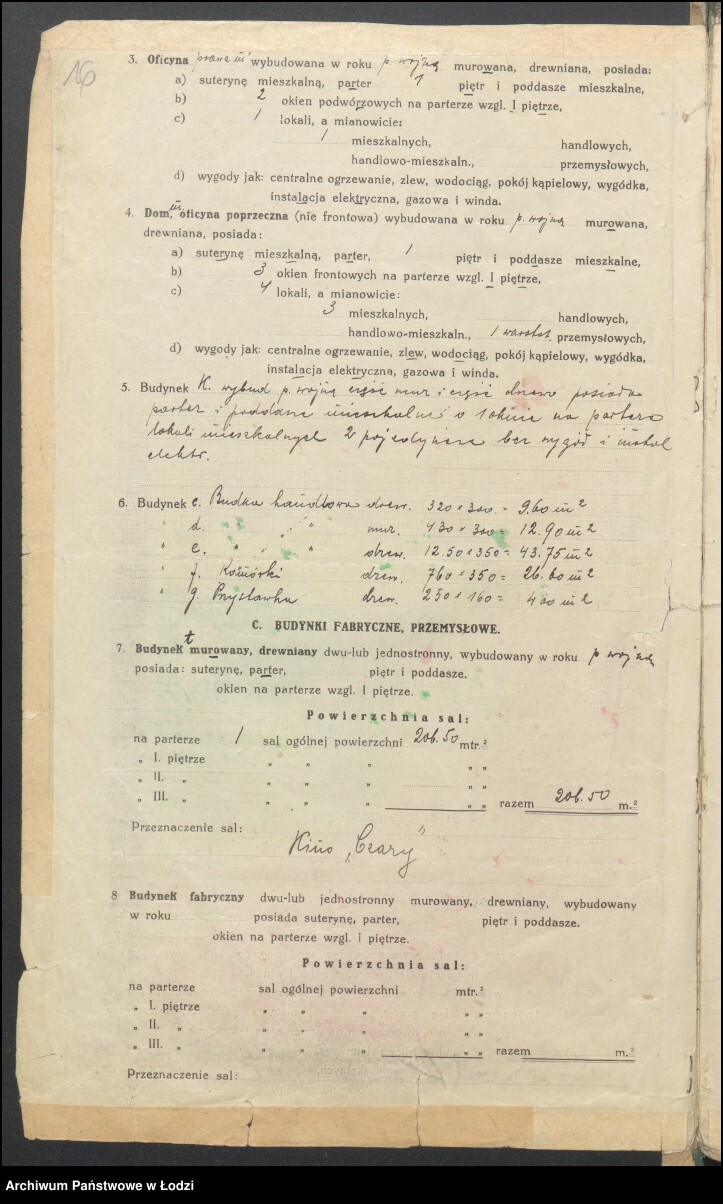 16
3. Oficyna prawa III wybudowana w roku p. wojną murowana, drewniana, posiada:
a) suterynę mieszkalną, parter 1 piętr i poddasze mieszkalne,
b) 2 okien podwórzowych na parterze wzgl. I piętrze,
c) 1 lokali, a mianowicie:
1 mieszkalnych, handlowych,
handlowo-mieszkaln., przemysłowych,
d) wygody jak: centralne ogrzewanie, zlew, wodociąg, pokój kąpielowy, wygódka,
instalacja elektryczna, gazowa i winda.
4. Dom, III oficyna poprzeczna (nie frontowa) wybudowana w roku p. wojną murowana,
drewniana, posiada:
a) suterynę mieszkalną, parter, 1 piętr i poddasze mieszkalne,
b) 3 okien frontowych na parterze wzgl. I piętrze,
c) 4 lokali, a mianowicie:
3 mieszkalnych, handlowych,
handlowo-mieszkaln., 1 warsztat. przemysłowych,
d) wygody jak: centralne ogrzewanie, zlew, wodociąg, pokój kąpielowy, wygódka,
instalacja elektryczna, gazowa i winda.
5. Budynek K. wybud p. wojną część mur i część drewn posiada
parter i poddasze mieszkalne o 1 oknie na parterze
lokali mieszkalnych 2 pojedyncze bez wygód i instal
elektr.
6. Budynek c. Budka handlowa drew. 320 x 300 = 9.60 m2
" d. " " " mur. 430 x 300 = 12.90 m2
" e. " " " drew. 12.50 x 350 = 43.75 m2
" f. Komórki drew. 760 x 350 = 26.60 m2
" g. Przystawka drew. 250 x 160 = 4 00 m2
C. BUDYNKI FABRYCZNE, PRZEMYSŁOWE.
7. Budynek t murowany, drewniany dwu-lub jednostronny, wybudowany w roku p wojną
posiada: suterynę, parter, piętr i poddasze.
okien na parterze wzgl. I piętrze.
Powierzchnia sal:
na parterze 1 sal ogólnej powierzchni 206.50 mtr.²
„ I. piętrze „ „ „ „ „
„ II. „ „ „ „ „ „
„ III. „ „ „ „ „ „ razem 206.50 m.²
Przeznaczenie sal:
Kino „Czary”
8 Budynek fabryczny dwu-lub jednostronny murowany, drewniany, wybudowany
w roku posiada suterynę, parter, piętr i poddasze.
okien na parterze wzgl. I piętrze.
Powierzchnia sal:
na parterze sal ogólnej powierzchni mtr.²
„ I. piętrze „ „ „ „ „
„ II. „ „ „ „ „ „
„ III. „ „ „ „ „ „ razem m.²
Przeznaczenie sal:
Archiwum Państwowe w Łodzi